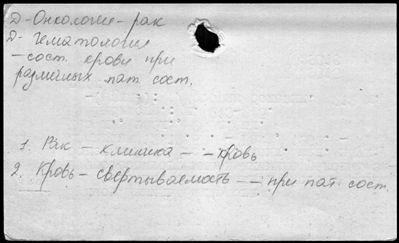 Д-Онкология-рак
Д- Гематология
-сост. крови при
различных пат. сост.
1. Рак - клиника - - кровь
2. Кровь - свертываемость - - при пат. сост.